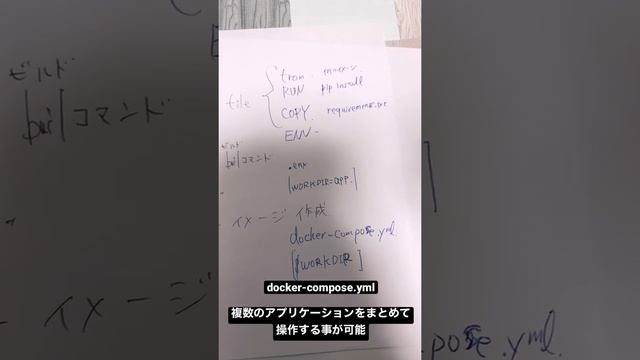 file
from イメージ
RUN pip install
COPY requirement.txt
ENV
ビルド
buildコマンド
.env
[WORKDIR=app.]
イメージ 作成
docker-compose.yml
[$WORKDIR]
docker-compose.yml
複数のアプリケーションをまとめて
操作する事が可能